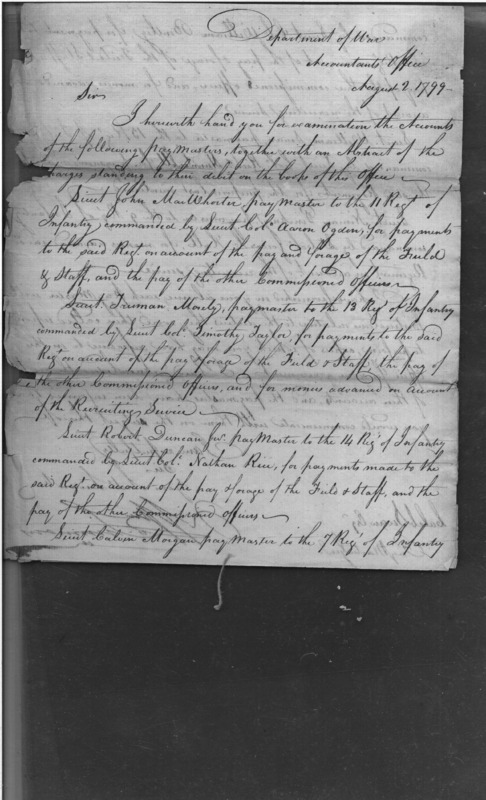 Department of War
Accountants Office
August 2. 1799
Sir
I herewith hand you for examination the Accounts
of the following paymasters, together with an Abstract of the
charges standing to their debit on the books of this Office
Lieut John MacWhorter paymaster to the 11 Regt of
Infantry commanded by Lieut Col. Aaron Ogden, for payments
to the said Regt. on account of the pay and forage of the Field
& Staff, and the pay of the other Commissioned Officers
Lieut. Truman Mosely, paymaster to the 13 Regt of Infantry
commanded by Lieut Col. Timothy Taylor for payments to the said
Regt on account of the pay & forage of the Field & Staff, the pay of
the other Commissioned Officers, and for monies advanced on account
of the Recruiting Service
Lieut Robert Duncan Junr. pay Master to the 14 Regt of Infantry
commanded by Lieut Col. Nathan Rice, for payments made to the
said Regt. on account of the pay & forage of the Field & Staff, and the
pay of the other Commissioned Officers
Lieut Calvin Morgan pay Master to the 7 Regt of Infantry